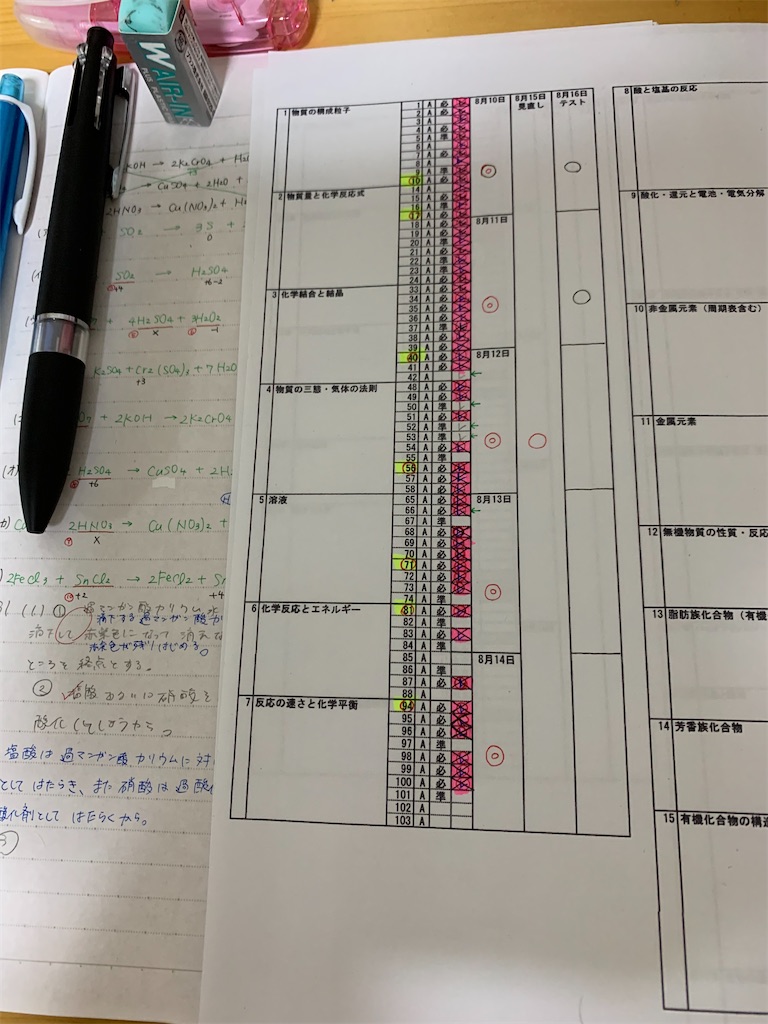 WAIR-IN
KOH → 2K₂CrO₄ + H₂O
→ CuSO₄ + 2H₂O +
2HNO₃ → Cu(NO₃)₂ + H₂
SO₂ → 3S +
0
SO₂ → H₂SO₄
+4 +6 -2
4H₂SO₄ + 3H₂O₂
X -1
K₂SO₄ + Cr₂(SO₄)₃ + 7H₂O
+3
+ 2KOH → 2K₂CrO₄
(オ) H₂SO₄ → CuSO₄ + 2H₂
+6
カ) Cu 2HNO₃ → Cu(NO₃)₂ +
X
2FeCl₃ + SnCl₂ → 2FeCl₂ + Sn
+2 +4
(1) ① 過マンガン酸カリウム水
滴下する過マンガン酸カ
滴下して 赤紫色になって 消えな
赤紫色が残りはじめる。
ところを終点とする。
② 塩酸あるいは硝酸を
酸化してしまうから。
塩酸は過マンガン酸カリウムに対
としてはたらき、また硝酸は過酸化
酸化剤としてはたらくから。
8月10日 8月15日 見直し 8月16日 テスト
1 物質の構成粒子
2 物質量と化学反応式
8月11日
3 化学結合と結晶
8月12日
4 物質の三態・気体の法則
5 溶液
8月13日
6 化学反応とエネルギー
8月14日
7 反応の速さと化学平衡
1 A 必
2 A 必
3 A 必
4 A 必
5 A 準
6 A
7 A 必
8 A
9 A 準
10 A 必
14 A
15 A 必
16 A 準
17 A 必
18 A 必
19 A 必
20 A 準
21 A 必
22 A 準
23 A 準
24 A 必
33 A 必
34 A 必
35 A 必
36 A 必
37 A 準
38 A 必
39 A 必
40 A 必
41 A 必
42 A
48 A 必
49 A 必
50 A 準
51 A 必
52 A 準
53 A 準
54 A 必
55 A 準
56 A 必
57 A 必
58 A 必
65 A 必
66 A 必
67 A 準
68 A 必
69 A 必
70 A 必
71 A 必
72 A 必
73 A 必
74 A 準
81 A 必
82 A 準
83 A 必
84 A 準
85 A
86 A 準
87 A 必
88 A
94 A 必
95 A 必
96 A 必
97 A 準
98 A 必
99 A 必
100 A 必
101 A 準
102 A
103 A
8 酸と塩基の反応
9 酸化・還元と電池・電気分解
10 非金属元素（周期表含む）
11 金属元素
12 無機物質の性質・反応
13 脂肪族化合物（有機
14 芳香族化合物
15 有機化合物の構造